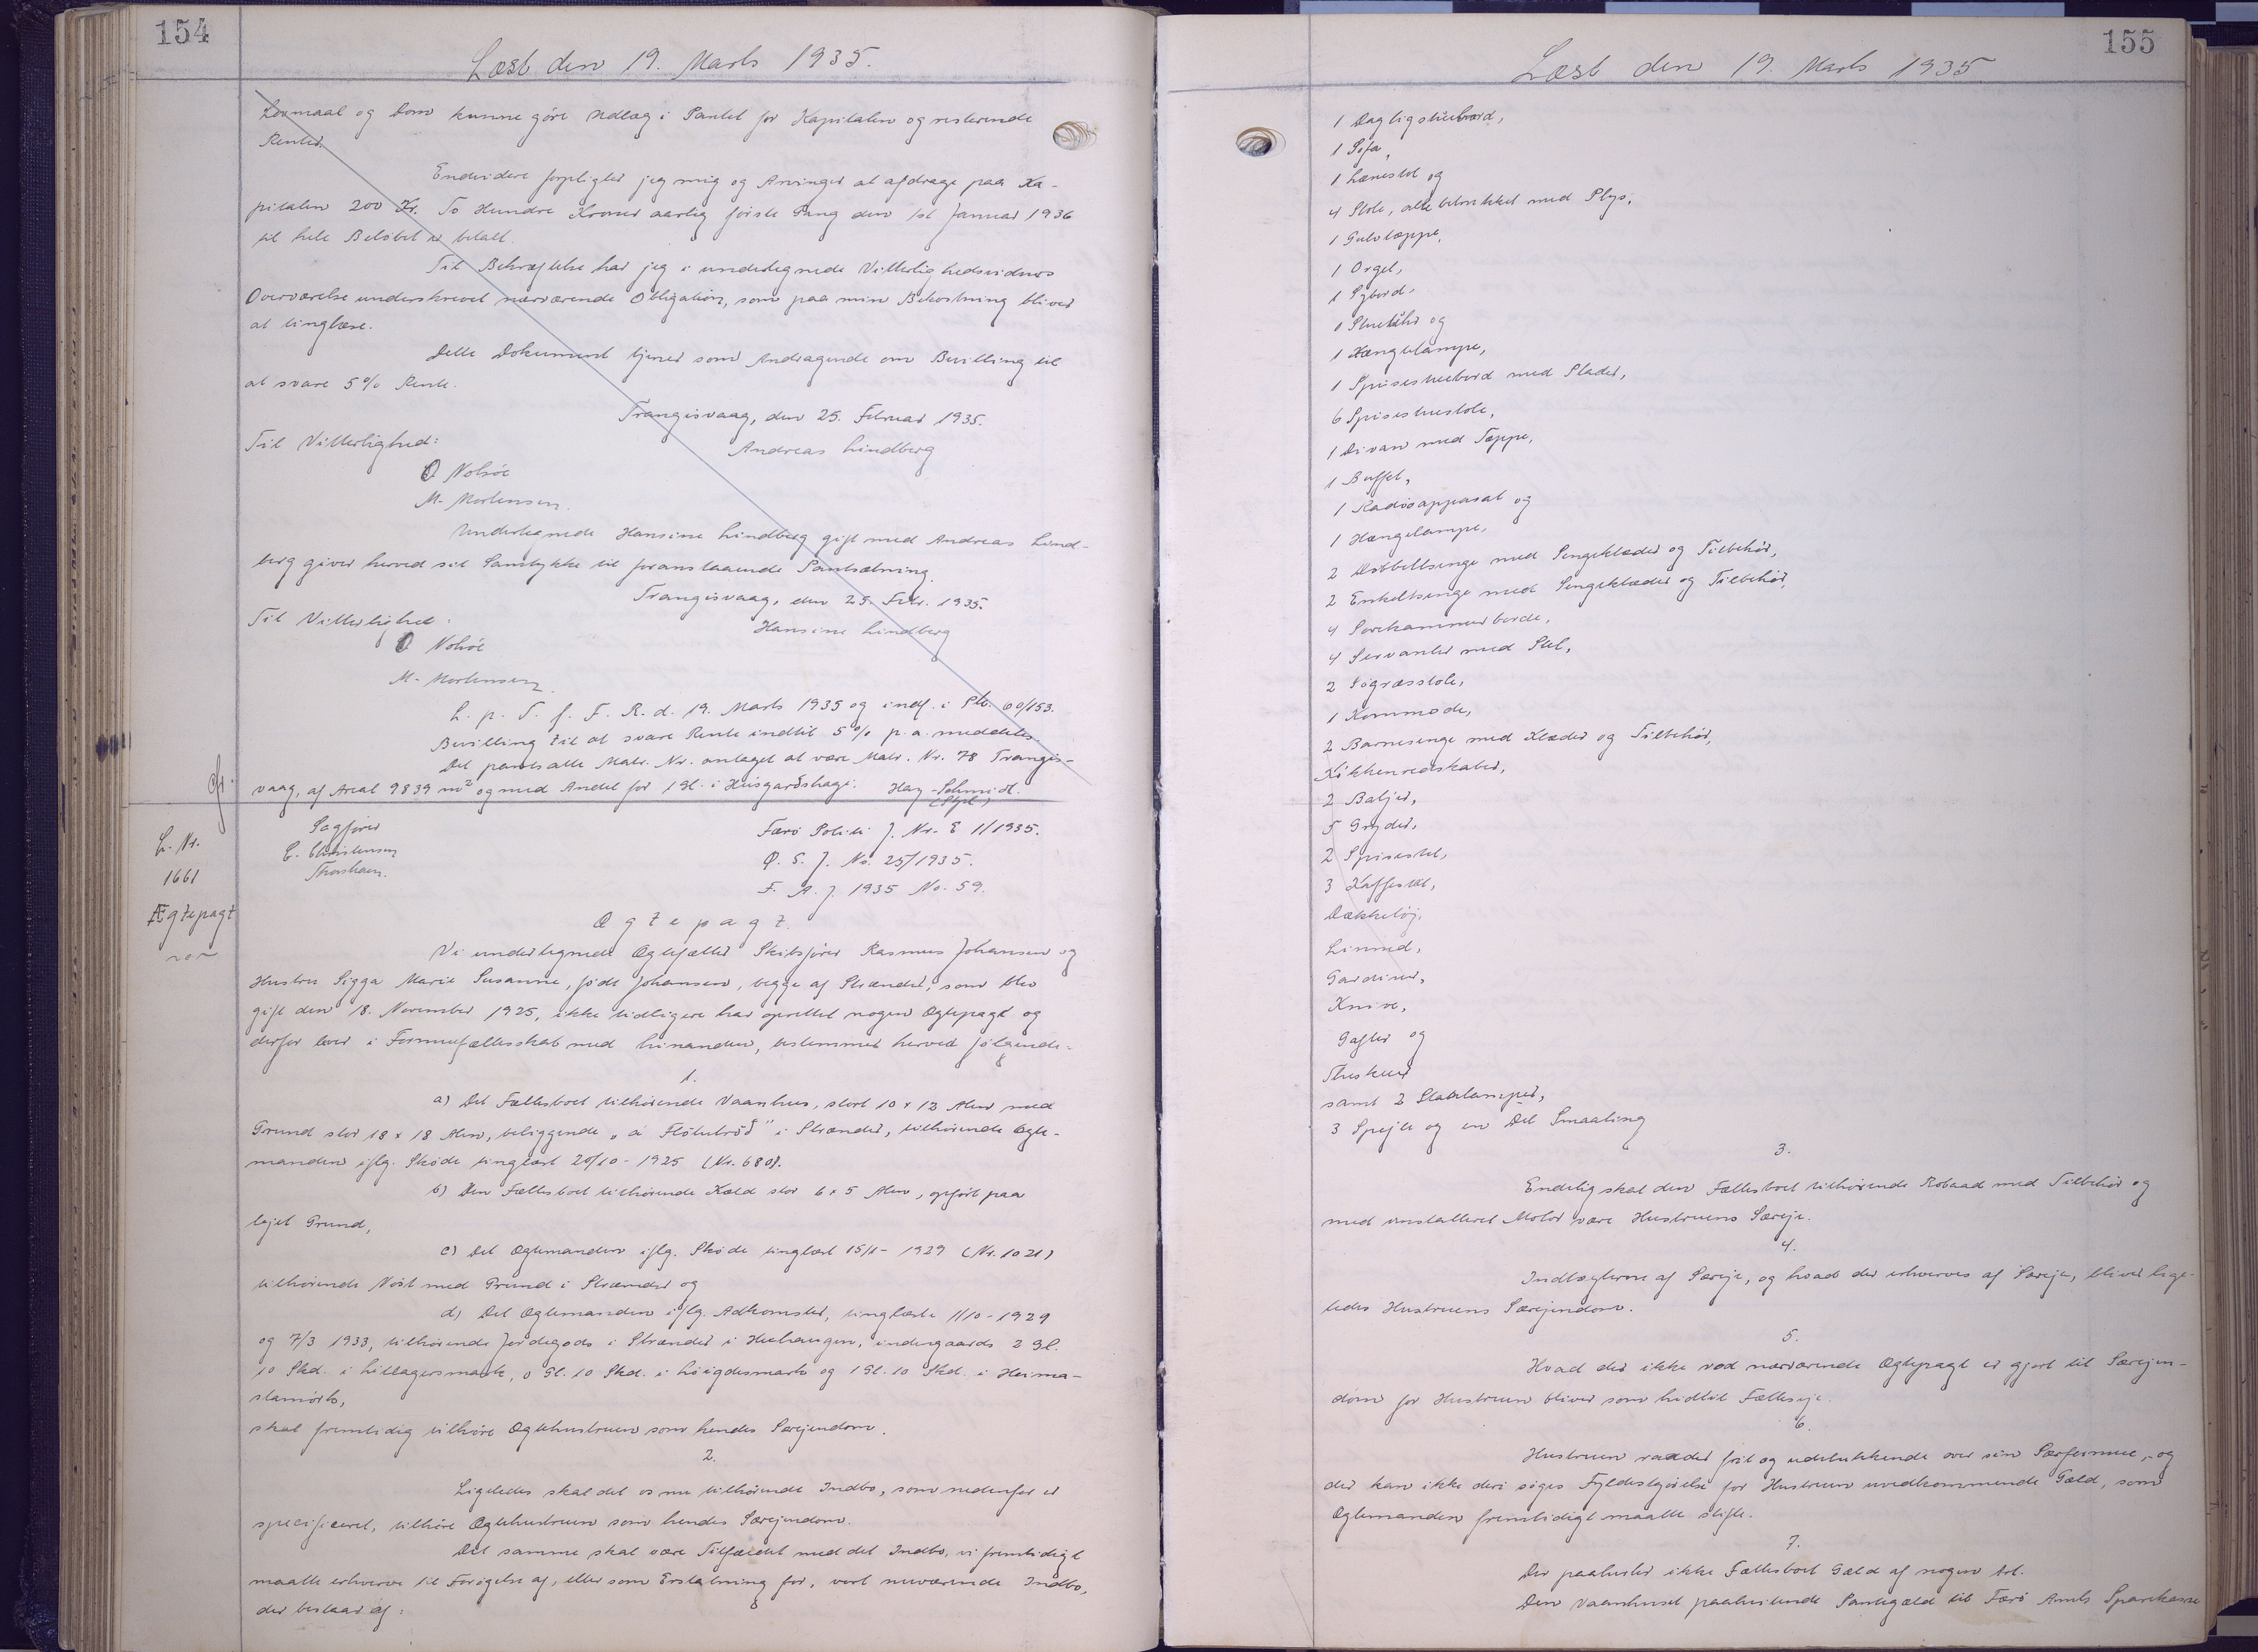 154
Læst den 19. Marts 1935.
Lovmaal og Dom kunne göre Udlæg i Pantet for Kapitalen og resterende
Renter.
Endvidere forpligter jeg mig og Arvinger at afdrage paa Ka-
pitalen 200 Kr. To Hundre Kroner aarlig förste Gang den 1st Januar 1936
til hele Belöbet er betalt.
Til Bekræftelse har jeg i undertegnede Vitterlighedsvidners
Overværelse underskrevet nærværende Obligation, som paa min Bekostning bliver
at tinglæse.
Dette Dokument tjener som Andragende om Bevilling til
at svare 5% Rente.
Trangisvaag, den 25. Februar 1935.
Til Vitterlighed:
Andreas Lindberg
O Nolsöe
M. Mortensen.
Undertegnede Hansine Lindberg gift med Andreas Lind-
berg giver herved sit Samtykke til foranstaaende Pantsætning.
Trangisvaag, den 25. Febr. 1935.
Til Vitterlighed:
Hansine Lindberg
O Nolsöe
M. Mortensen.
L. p. T. f. F. R. d. 19. Marts 1935 og indf. i Ptb. 60/153.
Bevilling til at svare Rente indtil 5% p. a. meddeles.
Det pantsatte Matr. Nr. antaget at være Matr. Nr. 78 Trangis-
vaag, af Areal 9839 m² og med Andel for 1 Gl. i Húsgarðshagi. Hay-Schmidt.
L. Nr.
1661
Ægtepagt
Sagförer
C. Christensen
Thorshavn.
Færö Politi J. Nr. E 1/1935.
Ø. S. J. No. 25/1935.
F. A. J. 1935 No. 59.
Ægtepagt.
Vi undertegnede Ægtefæller Skibsförer Rasmus Johansen og
Hustru Sigga Marie Susanne, födt Johansen, begge af Strænder, som blev
gift den 18. November 1925, ikke tidligere har oprettet nogen Ægtepagt og
derfor lever i Formuefællesskab med hinanden, bestemmer herved fölgende.
1.
a) Det Fællesboet tilhörende Vaanhus, stort 10 x 12 Alen med
Grund stor 18 x 18 Alen, beliggende „á Flötubröð" i Strænder, tilhörende Ægte-
manden iflg. Sköde tinglæst 20/10-1925 (Nr. 680).
b) Den Fællesboet tilhörende Kæld stor 6 x 5 Alen, opfört paa
lejet Grund,
c) Det Ægtemanden iflg. Sköde tinglæst 15/1-1929 (Nr. 1021)
tilhörende Nöst med Grund i Strænder og
d) Det Ægtemanden iflg. Adkomster, tinglæste 1/10-1929
og 7/3 1933, tilhörende Jordegods i Strænder i Heehaugen, indergaards 2 Gl.
10 Skd. i Litlagersmark, 0 Gl. 10 Skd. i Löigdesmark og 1 Gl. 10 Skd. i Heima-
stamörk,
skal fremtidig tilhöre Ægtehustruen som hendes Særejendom.
2.
Ligeledes skal det os nu tilhörende Indbo, som nedenfor er
specificeret, tilhöre Ægtehustruen som hendes Særejendom.
Det samme skal være Tilfældet med det Indbo, vi fremtidigt
maatte erhverve til Forögelse af, eller som Erstatning for, vort nuværende Indbo,
der bestaar af:
155
Læst den 19. Marts 1935
1 Dagligstuebord,
1 Sofa,
1 Lænestol og
4 Stole, alle betrukket med Plys,
1 Gulvtæppe,
1 Orgel,
1 Sybord,
1 Hængelampe,
1 Spisestuebord med Plader,
6 Spisestuestole,
1 Divan med Tæppe,
1 Buffet,
1 Radioapparat og
1 Hængelampe,
2 Dobbeltsenge med Sengeklæder og Tilbehör,
2 Enkeltsenge med Sengeklæder og Tilbehör,
4 Sovekammerborde,
4 Servanter med Stel,
2 Sögræsstole,
1 Kommode,
2 Barnesenge med Klæder og Tilbehör,
Kökkenredskaber,
2 Baljer,
5 Gryder,
2 Spisestel,
3 Kaffestel,
Dækketöj,
Linned,
Gardiner,
Knive,
Gafler og
Theskeer
samt 2 Staklamper,
3 Spejle og en Del Smaating
3.
Endelig skal den Fællesboet tilhörende Robaad med Tilbehör og
med installeret Motor være Hustruens Særeje.
4.
Indtægterne af Særeje, og hvad der erhverves af Særeje, bliver lige-
ledes Hustruens Særejendom.
5.
Hvad der ikke ved nærværende Ægtepagt er gjort til Særejen-
dom for Hustruen bliver som hidtil Fælleseje.
6.
Hustruen raader frit og udelukkende over sin Særformue, og
der kan ikke deri söges Fyldestgörelse for Hustruen uvedkommende Gæld, som
Ægtemanden fremtidigt maatte stifte.
7.
Der paahviler ikke Fællesboet Gæld af nogen Art.
Den Vaanhuset paahvilende Pantegæld til Færö Amts Sparekasse